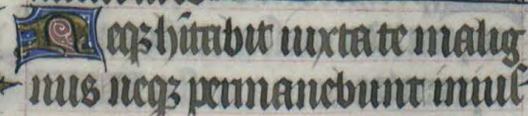 Neqꝫ hĩtabit iuxta te malig
nus neqꝫ permanebunt iniusˉ